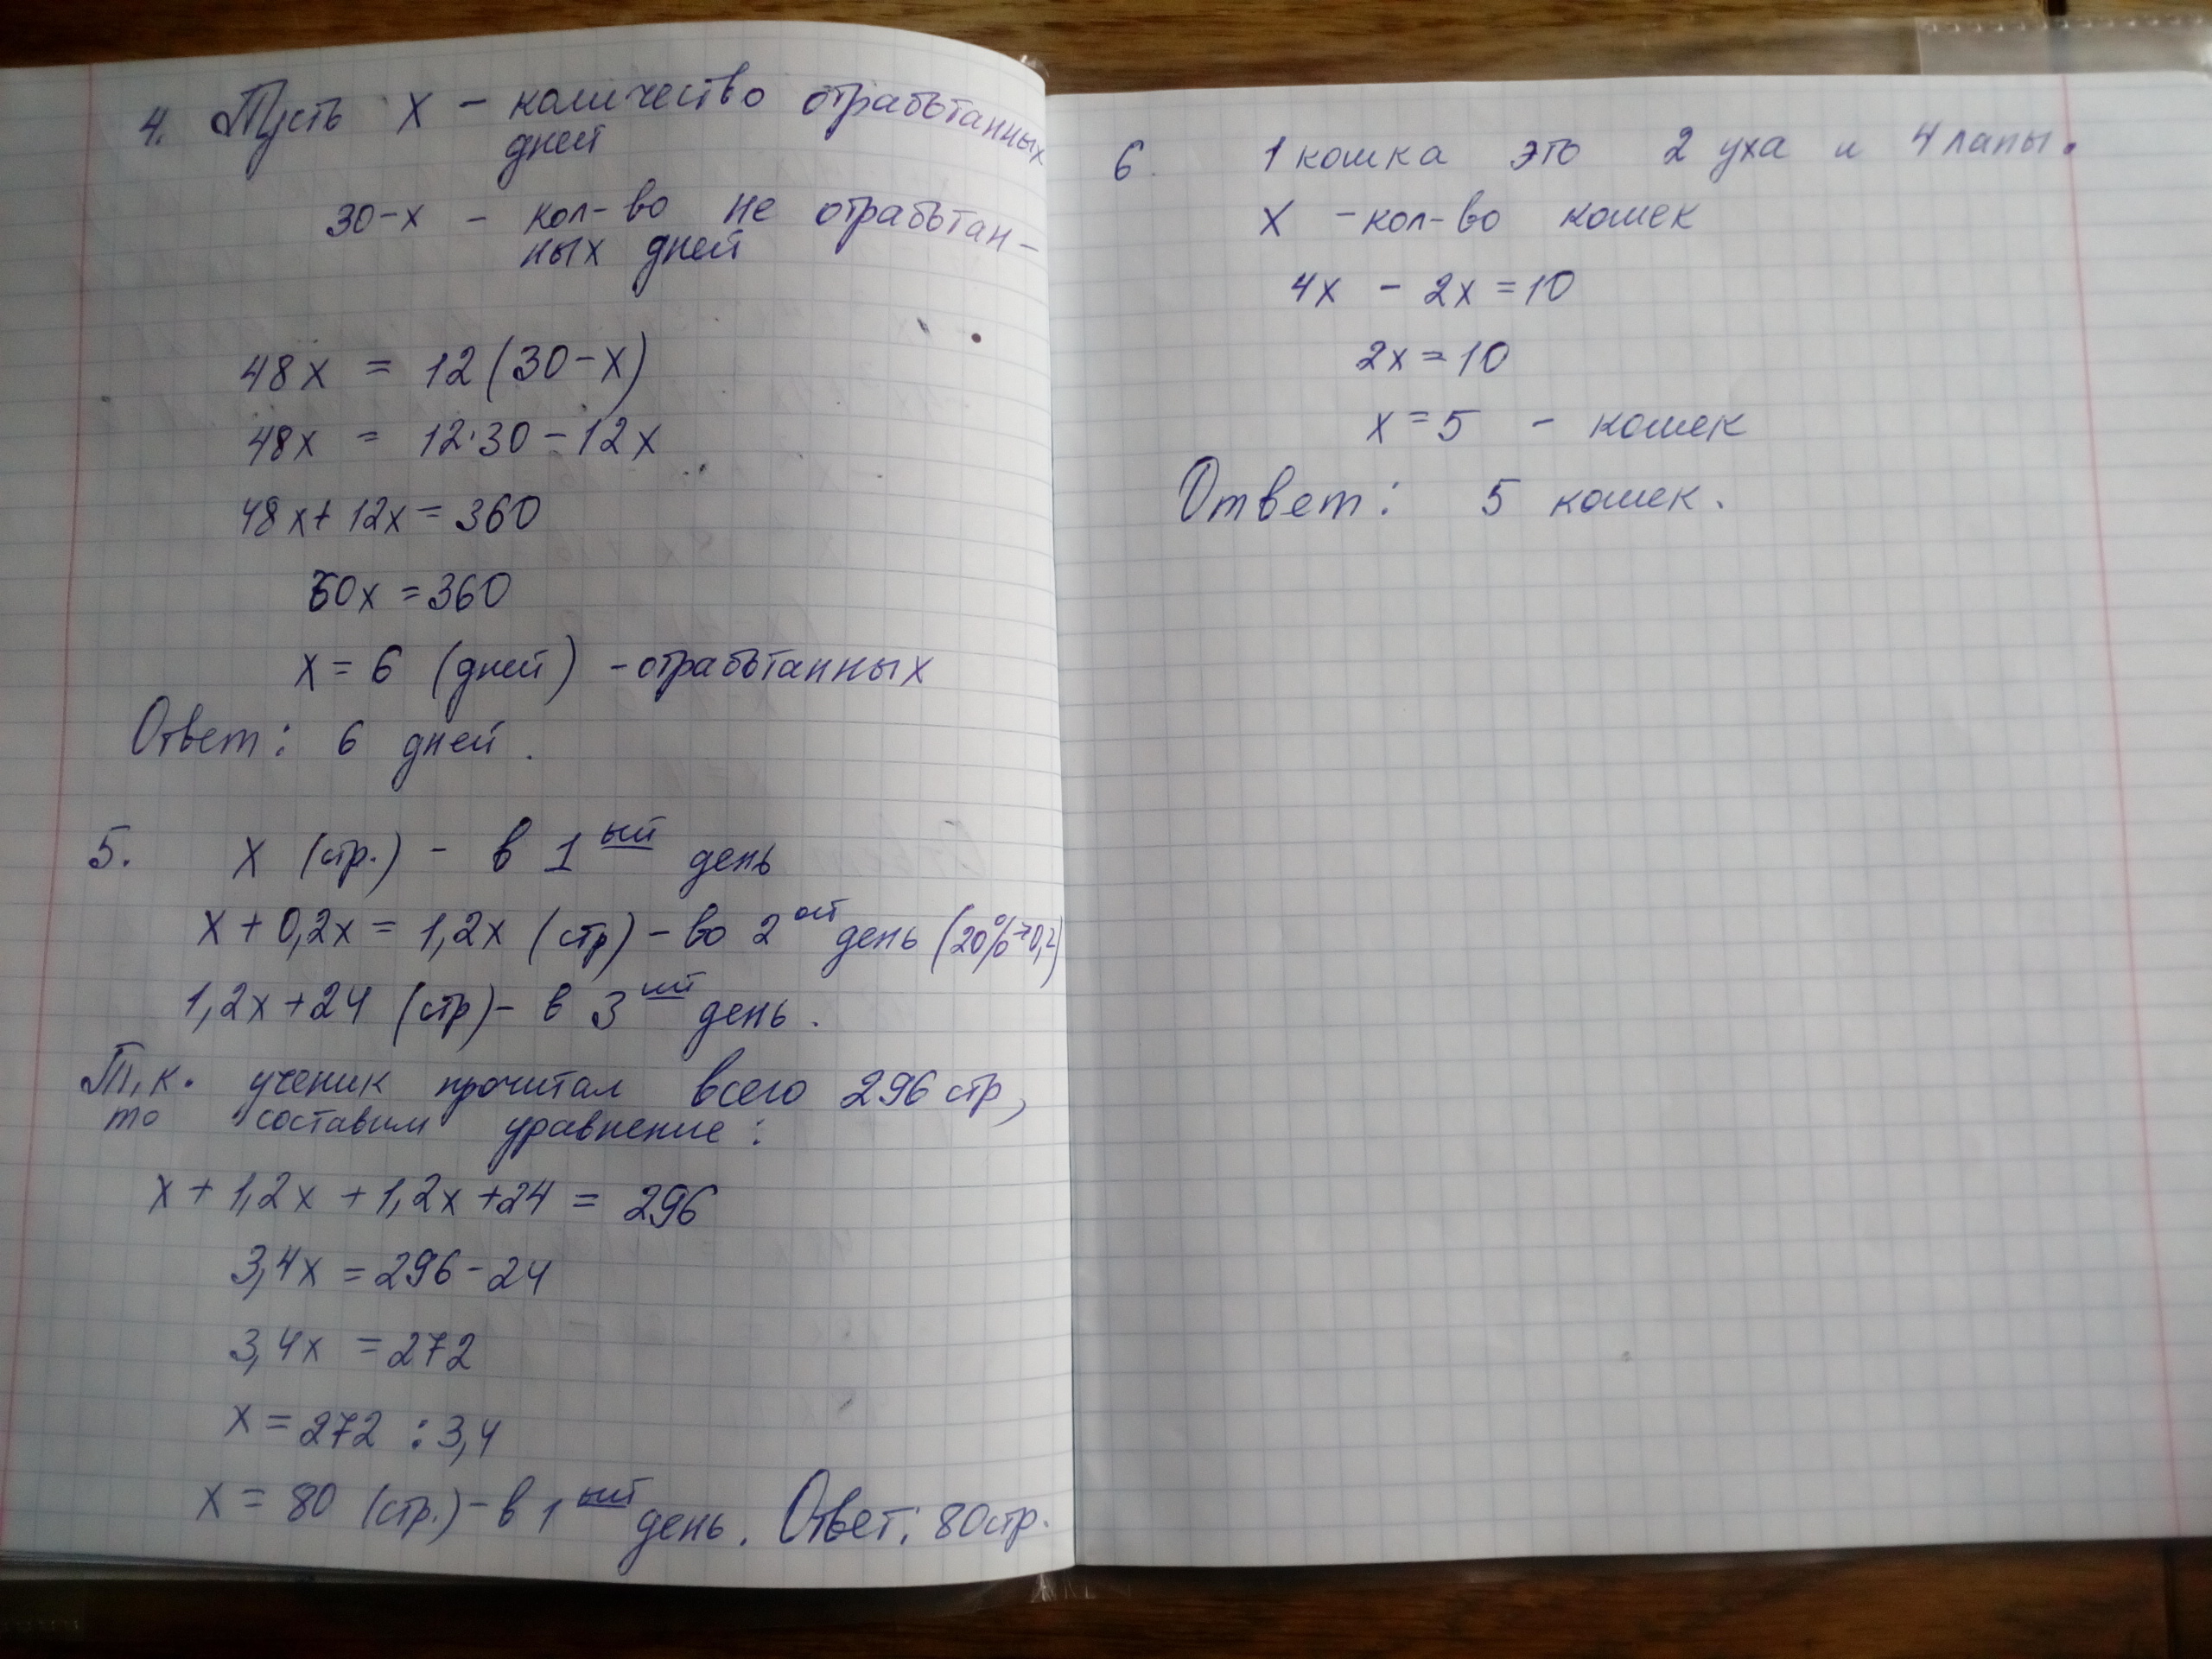 4. Пусть x – количество отработанных
дней
30-x – кол-во не отработан-
ных дней
48x = 12(30-x)
48x = 12·30-12x
48x+12x=360
60x=360
x=6 (дней) -отработанных
Ответ: 6 дней.
5. x (стр.) - в 1ый день
x+0,2x=1,2x (стр) - во 2ой день (20%→0,2)
1,2x+24 (стр) - в 3ий день.
Т.к. ученик прочитал всего 296 стр,
то составим уравнение:
x+1,2x+1,2x+24=296
3,4x=296-24
3,4x=272
x=272:3,4
x=80 (стр.) - в 1ый день. Ответ: 80стр.
6. 1 кошка это 2 уха и 4 лапы.
x -кол-во кошек
4x - 2x=10
2x=10
x=5 - кошек
Ответ: 5 кошек.